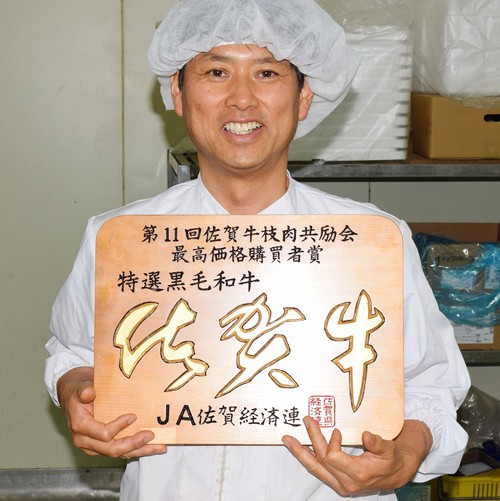 第11回佐賀牛枝肉共励会
最高価格購買者賞
特選黒毛和牛
佐賀牛
JA佐賀経済連
佐賀県
経済連